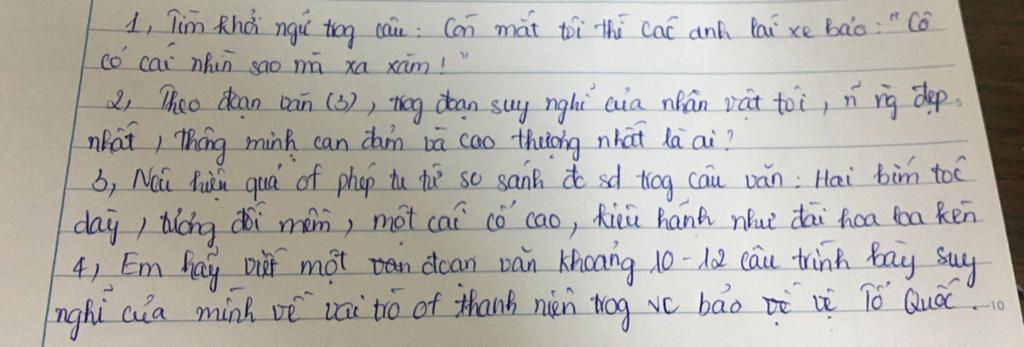 1, Tìm khởi ngữ trog câu : Còn mắt tôi thì các anh lái xe bảo : "Cô
có cái nhìn sao mà xa xăm ! "
2, Theo đoạn văn (3) , trog đoạn suy nghĩ của nhân vật tôi , n~ ng đẹp
nhất , thông minh can đảm và cao thượng nhất là ai ?
3, Nêu hiệu quả of phép tu từ so sánh đc sd trog câu văn : Hai bím tóc
dày , tương đối mềm , một cái cổ cao , kiêu hãnh như đài hoa loa kèn
4, Em hãy viết một đoan văn khoảng 10 - 12 câu trình bày suy
nghĩ của mình về vai trò of thanh niên trog vc bảo vệ Tổ Quốc . 10